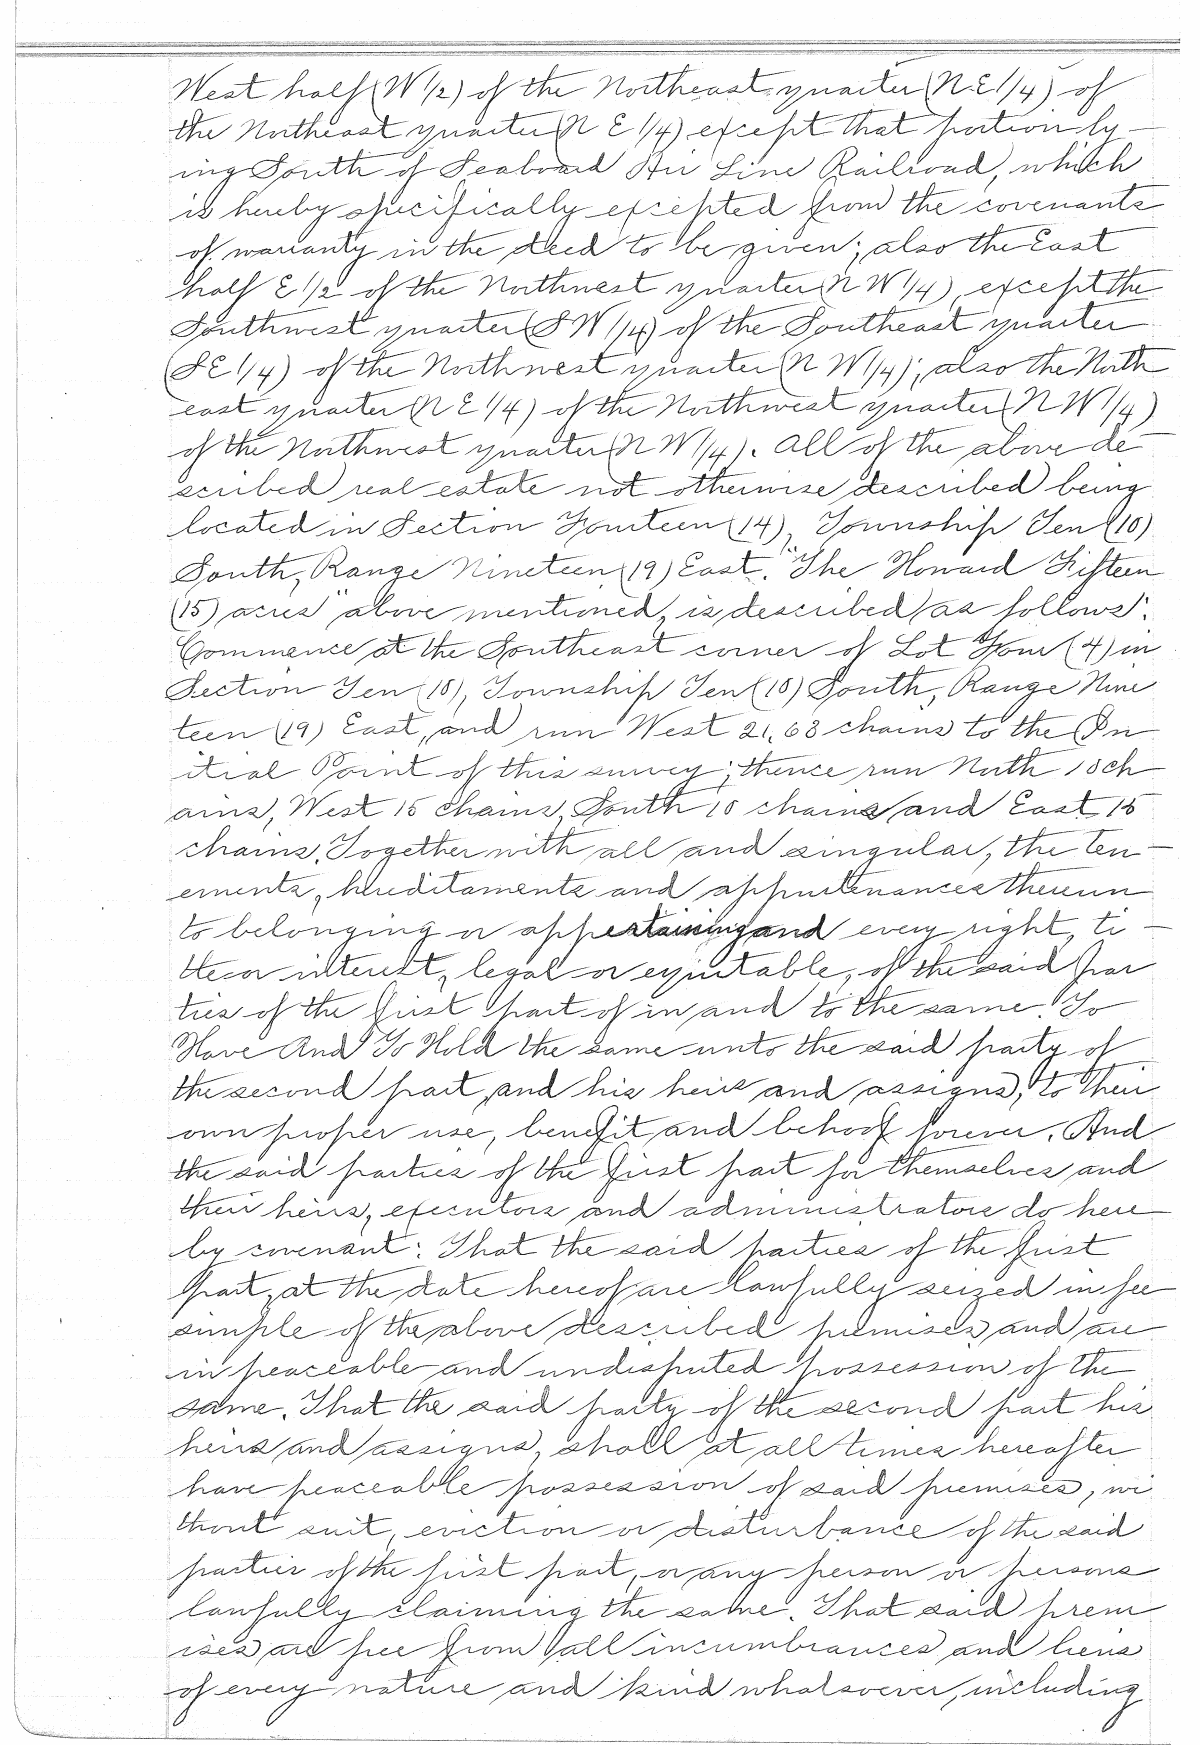 West half (W 1/2) of the Northeast quarter (N.E 1/4) of
the Northeast quarter (N E 1/4) except that portion ly-
ing South of Seaboard Air Line Railroad, which
is hereby specifically excepted from the covenants
of warranty in the deed to be given; also the East
half E 1/2 of the Northwest quarter (N W 1/4), except the
Southwest quarter (S W 1/4) of the Southeast quarter
(S E 1/4) of the Northwest quarter (N W 1/4); also the North
east quarter (N E 1/4) of the Northwest quarter (N W 1/4)
of the Northwest quarter (N W 1/4). All of the above de-
scribed real estate not otherwise described being
located in Section Fourteen (14), Township Ten (10)
South, Range Nineteen (19) East. "The Howard Fifteen
(15) acres" above mentioned, is described as follows:
Commence at the Southeast corner of Lot Four (4) in
Section Ten (10), Township Ten (10) South, Range Nine
teen (19) East, and run West 21,63 chains to the In
itial Point of this survey; thence run North 10 ch
ains, West 15 chains, South 10 chains and East 15
chains. Together with all and singular, the ten-
ements, hereditaments and appurtenances thereun
to belonging or appertaining and every right, ti-
tle or interest, legal or equitable, of the said par
ties of the first part of in and to the same. To
Have And To Hold the same unto the said party of
the second part, and his heirs and assigns, to their
own proper use, benefit and behoof forever. And
the said parties of the first part for themselves and
their heirs, executors and administrators do here
by covenant: That the said parties of the first
part, at the date hereof are lawfully seized in fee
simple of the above described premises, and are
in peaceable and undisputed possession of the
same. That the said party of the second part his
heirs and assigns, shall at all times hereafter
have peaceable possession of said premises, wi
thout suit, eviction or disturbance of the said
parties of the first part, or any person or persons
lawfully claiming the same. That said prem
ises are free from all incumbrances and liens
of every nature and kind whatsoever, including